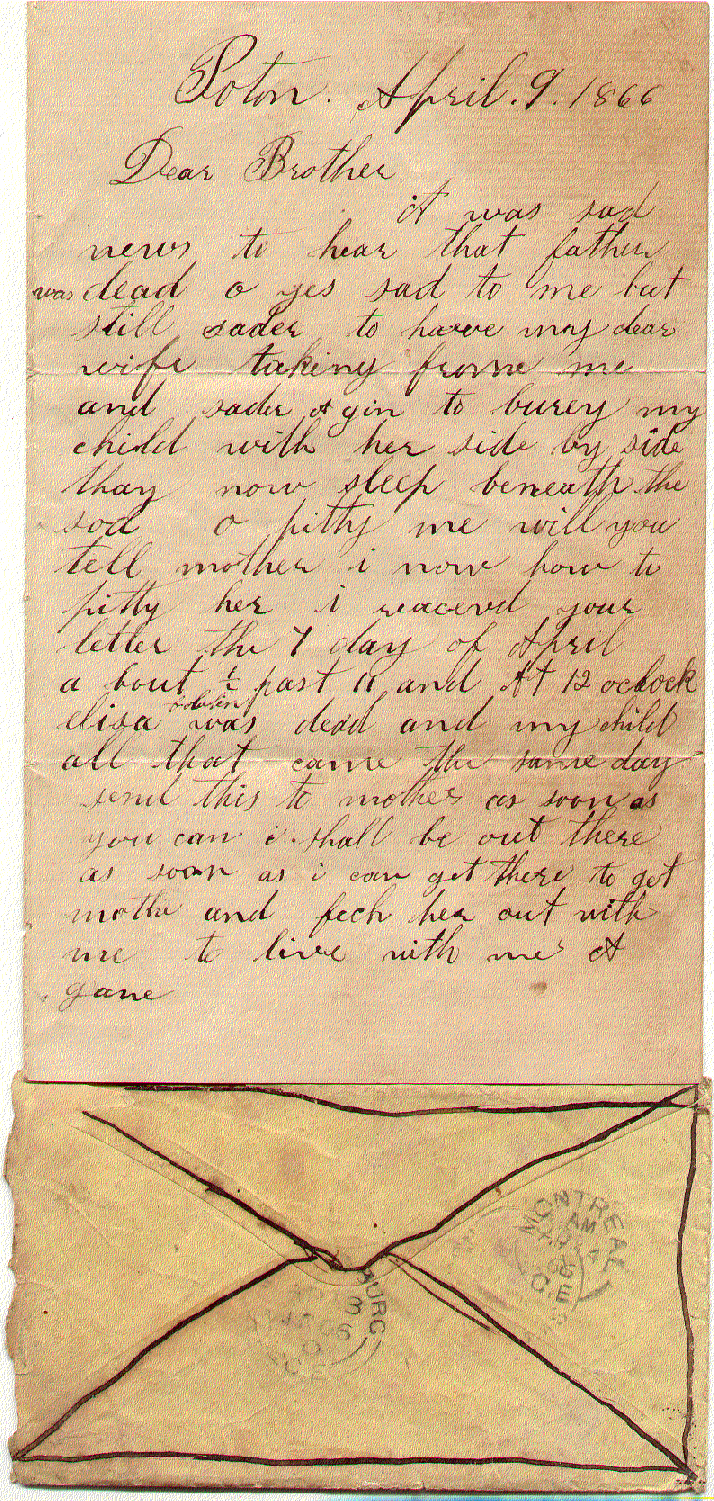 Poton. April. 9. 1866
Dear Brother
it was sad
news to hear that father
was dead o yes sad to me but
still sader to harve may dear
wife taking frome me
and sader A gin to burey my
child with her side by side
thay now sleep beneath the
sod o pitty me will you
tell mother i now how to
pitty her i reacevd your
letter the 7 day of April
a bout ½ past 11 and At 12 oclock
eliza was dead and my child
all that came the same day
send this to mother as soon as
you can i shall be out there
as soon as i can get there to get
mothe and fech her out with
me to live with me A
gane
MONTREAL
AM
C.E
BURG